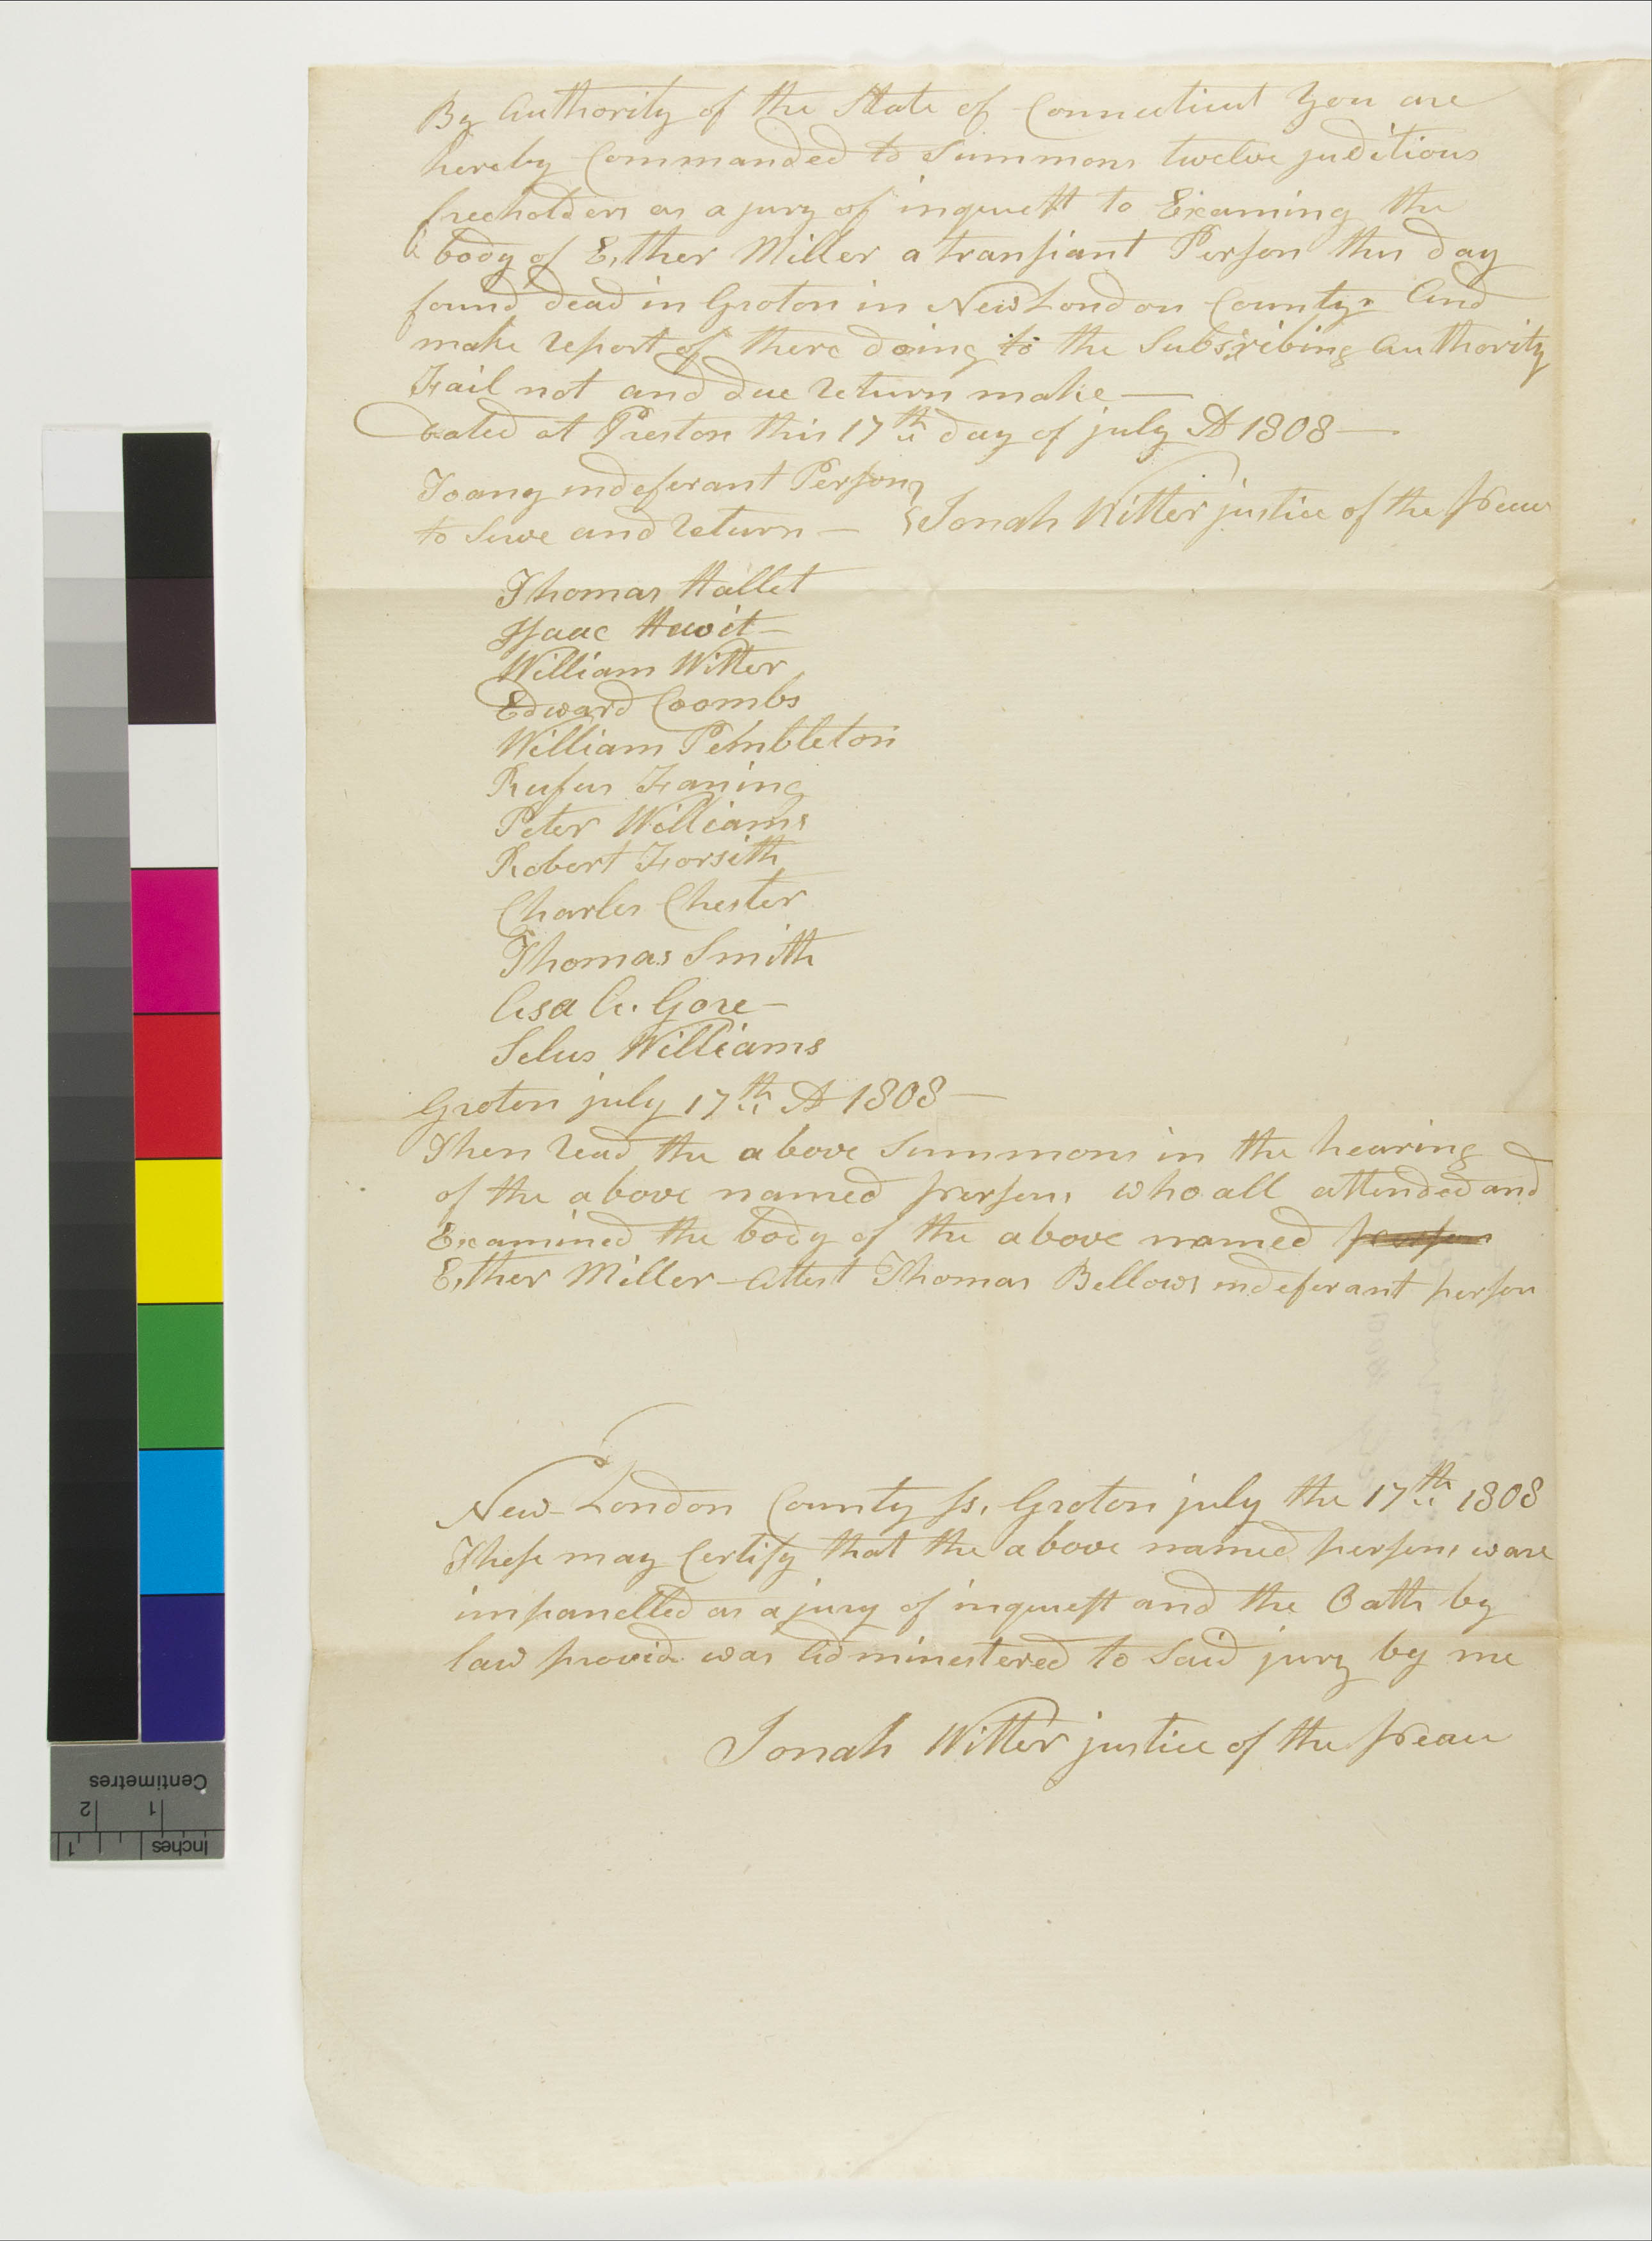 By Authority of the State of Connecticut You are
hereby Commanded to Summons twelve juditious
freeholders as a jury of inquest to Examing the
body of Esther Miller a transiant Person this day
found dead in Groton in New London County And
make report of there doing to the Subscribing Authority
Fail not and due return make —
Dated at Preston this 17th day of july AD 1808 —
To any indeferant Person
to Serve and return — Jonah Witter justice of the peace
Thomas Hallet
Isaac Hewit —
William Witter
Edward Coombs
William Pembleton
Rufus Faning
Peter Williams
Robert Forsith
Charles Chester
Thomas Smith
Asa A. Gore —
Selus Williams
Groton july 17th AD 1808 —
Then read the above Summons in the hearing
of the above named persons who all attended and
Examined the body of the above named person
Esther Miller — Attest Thomas Bellows indeferant person
New London County ss. Groton july the 17th 1808
These may Certify that the above named persons ware
impanelled as a jury of inquest and the Oath by
law provid was Adminestered to Said jury by me
Jonah Witter justice of the peace
Centimetres
1 2
Inches
1